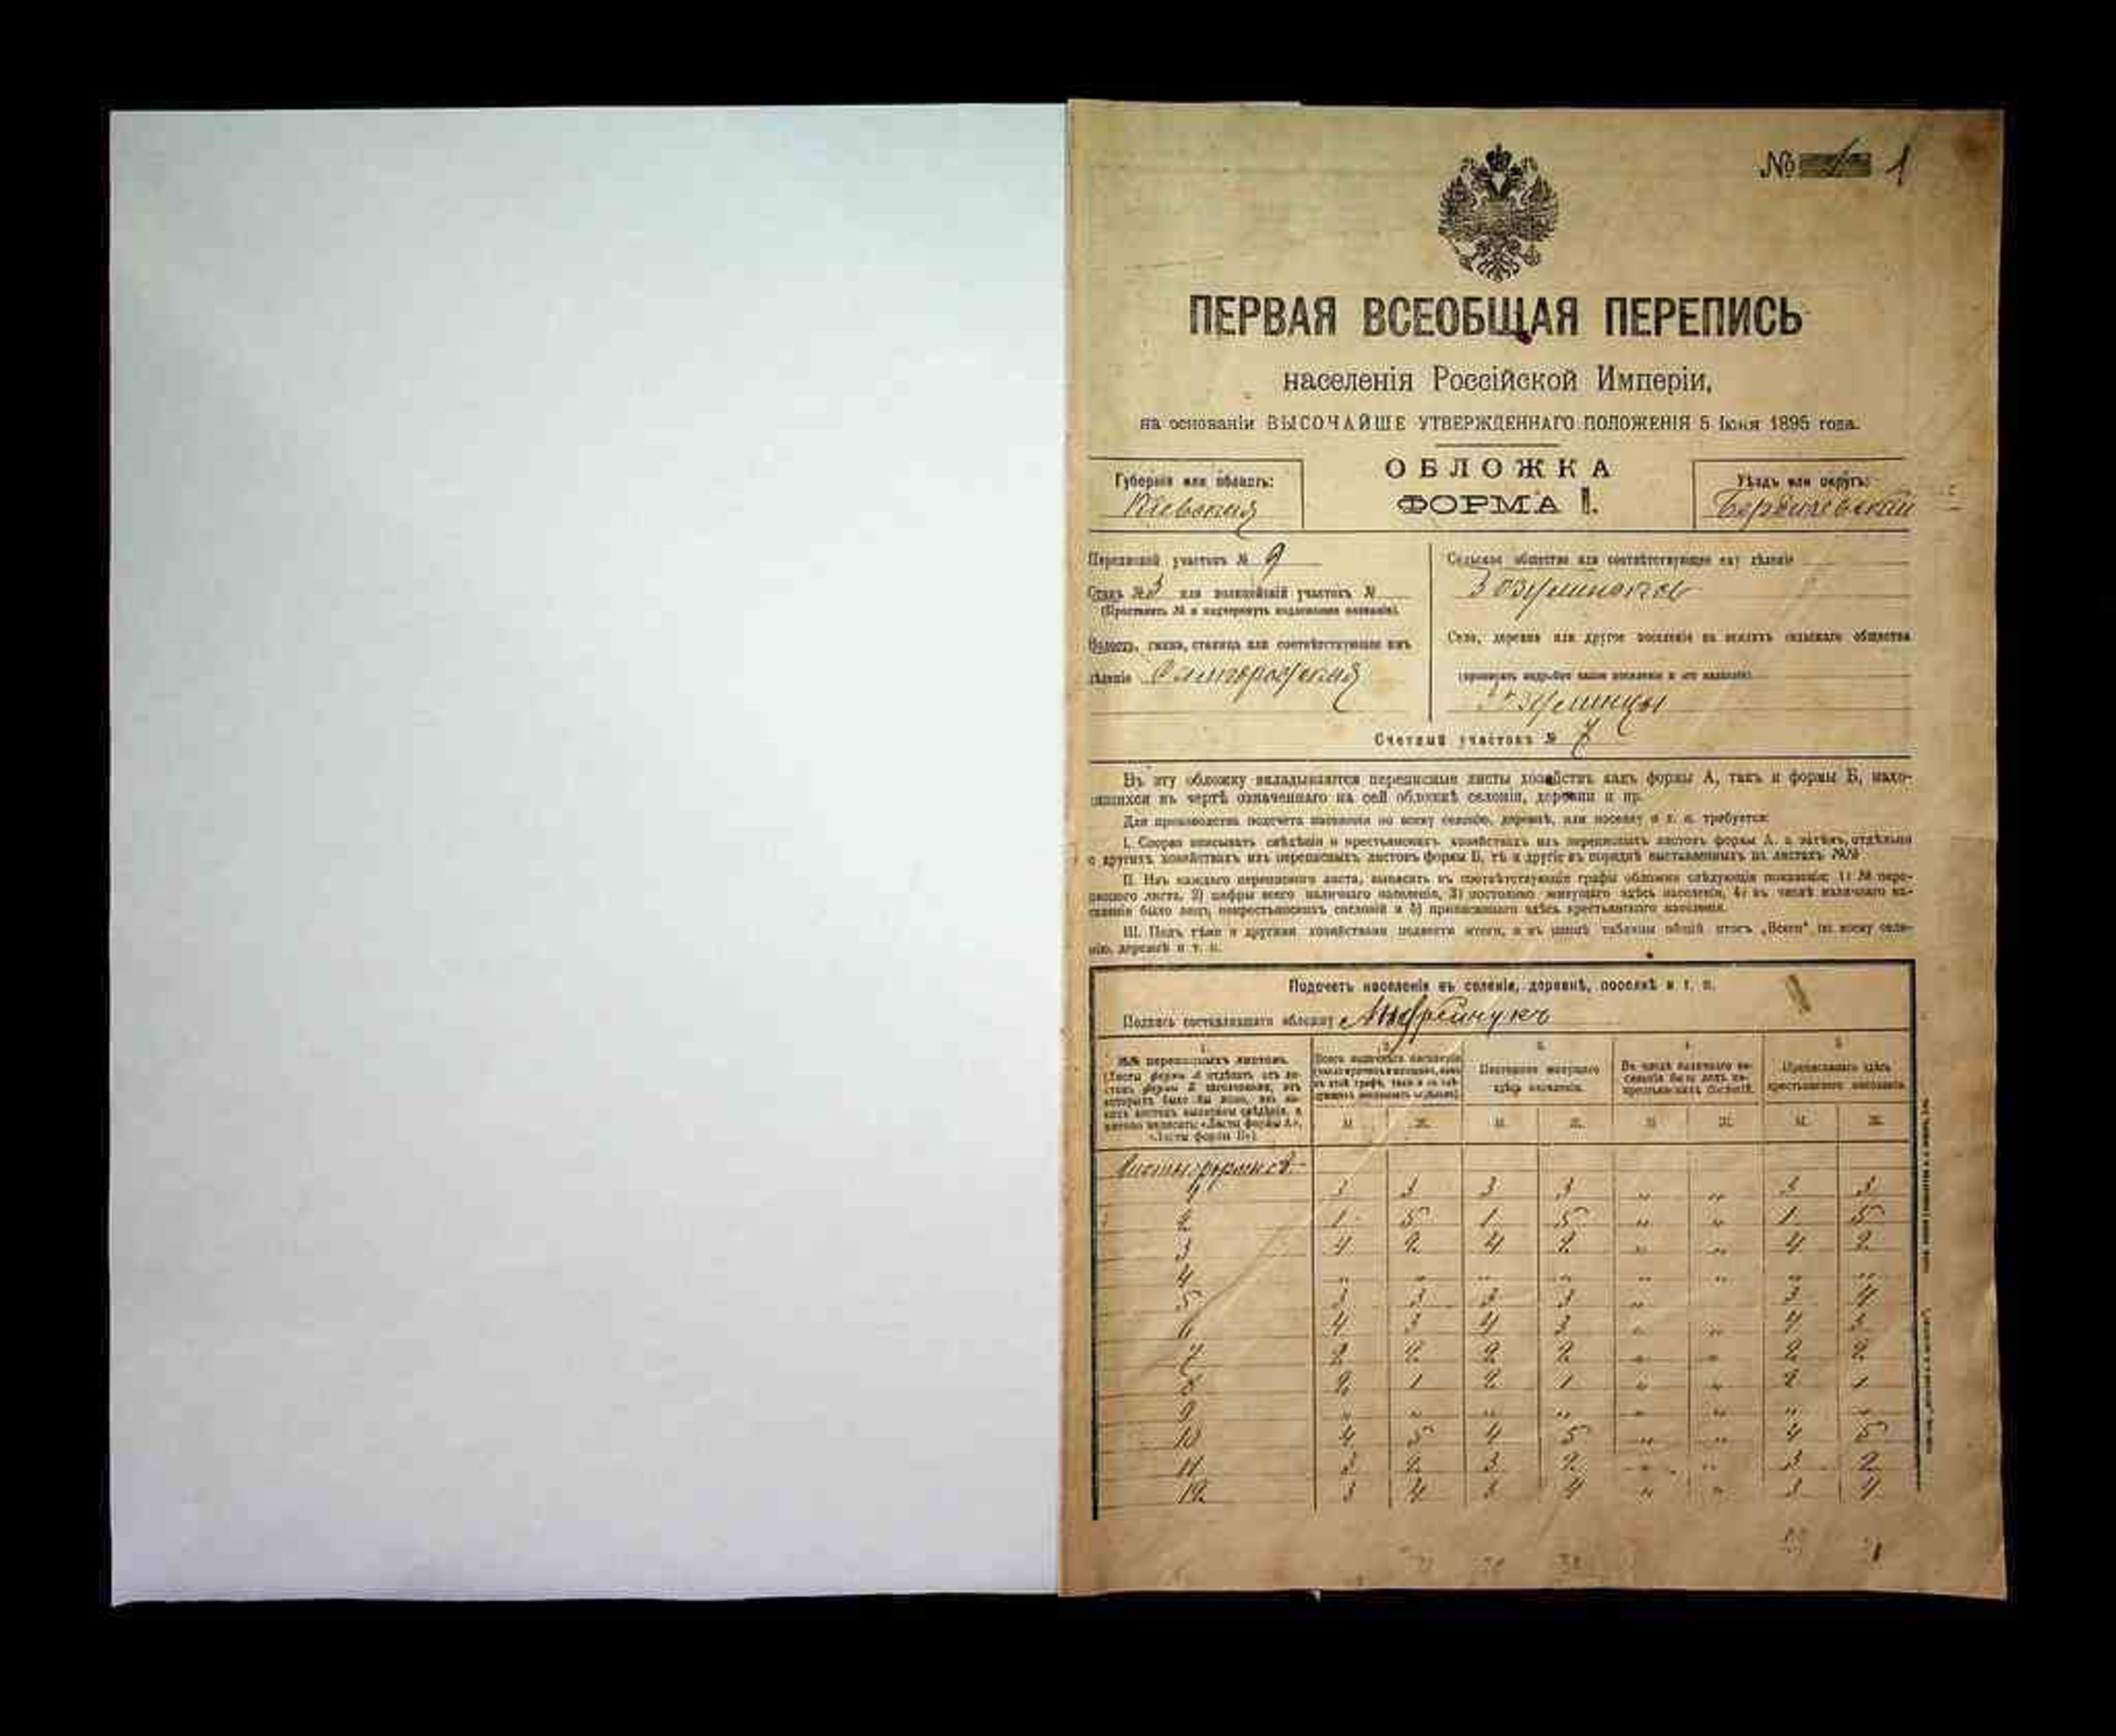 № 1
ПЕРВАЯ ВСЕОБЩАЯ ПЕРЕПИСЬ
населенія Россійской Имперіи,
на основаніи ВЫСОЧАЙШЕ УТВЕРЖДЕННАГО ПОЛОЖЕНІЯ 5 Іюня 1895 года.
ОБЛОЖКА
ФОРМА I.
Губернія или область:
Кіевская
Уѣздъ или округъ:
Бердичевскій
Переписной участокъ № 9
Станъ № 3 или полицейскій участокъ №
(Проставить № и подчеркнуть подлежащее названіе).
Волость, гмина, станица или соотвѣтствующее имъ
дѣленіе
Сельское общество или соотвѣтствующее ему дѣленіе
Село, деревня или другое поселеніе на земляхъ сельскаго общества
(прописать подробно какое поселеніе и его названіе)
Зозулинцы
Счетный участокъ № 7
Въ эту обложку вкладываются переписные листы хозяйствъ какъ формы А, такъ и формы Б, нахо-
дящихся въ чертѣ означеннаго на сей обложкѣ селенія, деревни и пр.
Для производства подсчета населенія по всему селенію, деревнѣ, или поселку и т. п. требуется:
I. Сперва вписывать свѣдѣнія о крестьянскихъ хозяйствахъ изъ переписныхъ листовъ формы А, а затѣмъ, отдѣльно
о другихъ хозяйствахъ изъ переписныхъ листовъ формы Б, тѣ и другіе въ порядкѣ выставленныхъ на листахъ №№
II. Изъ каждаго переписного листа, выписать въ соотвѣтствующіе графы обложки слѣдующія показанія: 1) № пере-
писного листа, 2) цифры всего наличнаго населенія, 3) постоянно живущаго здѣсь населенія, 4) въ числѣ наличнаго на-
селенія было лицъ, некрестьянскихъ сословій и 5) приписаннаго здѣсь крестьянскаго населенія.
III. Подъ тѣми и другими хозяйствами подвести итоги, а въ концѣ таблицы общій итогъ „Всего“ по всему селе-
нію, деревнѣ и т. п.
Подсчетъ населенія въ селеніи, деревнѣ, поселкѣ и т. п.
Подпись составлявшаго обложку Андрейчукъ
1 2 3 4 5
№№ переписныхъ листовъ.
Постоянно живущаго
здѣсь населенія.
Въ числѣ наличнаго на-
селенія было лицъ не-
крестьянскихъ сословій.
Приписаннаго здѣсь
крестьянскаго населенія.
М. Ж. М. Ж. М. Ж. М. Ж.
1 3 3 3 3 „ „ 3 3
2 1 5 1 5 „ „ 1 5
3 4 2 4 2 „ „ 4 2
4 „ „ „ „ „ „ „ „
5 3 3 3 3 „ 3 4
6 4 3 4 3 „ „ 4 3
7 2 2 2 2 „ „ 2 2
8 2 1 2 1 „ „ 2 1
9 „ „ „ „ „ „ „ „
10 4 5 4 5 „ „ 4 5
11 3 2 3 2 „ „ 3 2
12 3 4 3 4 „ „ 3 4